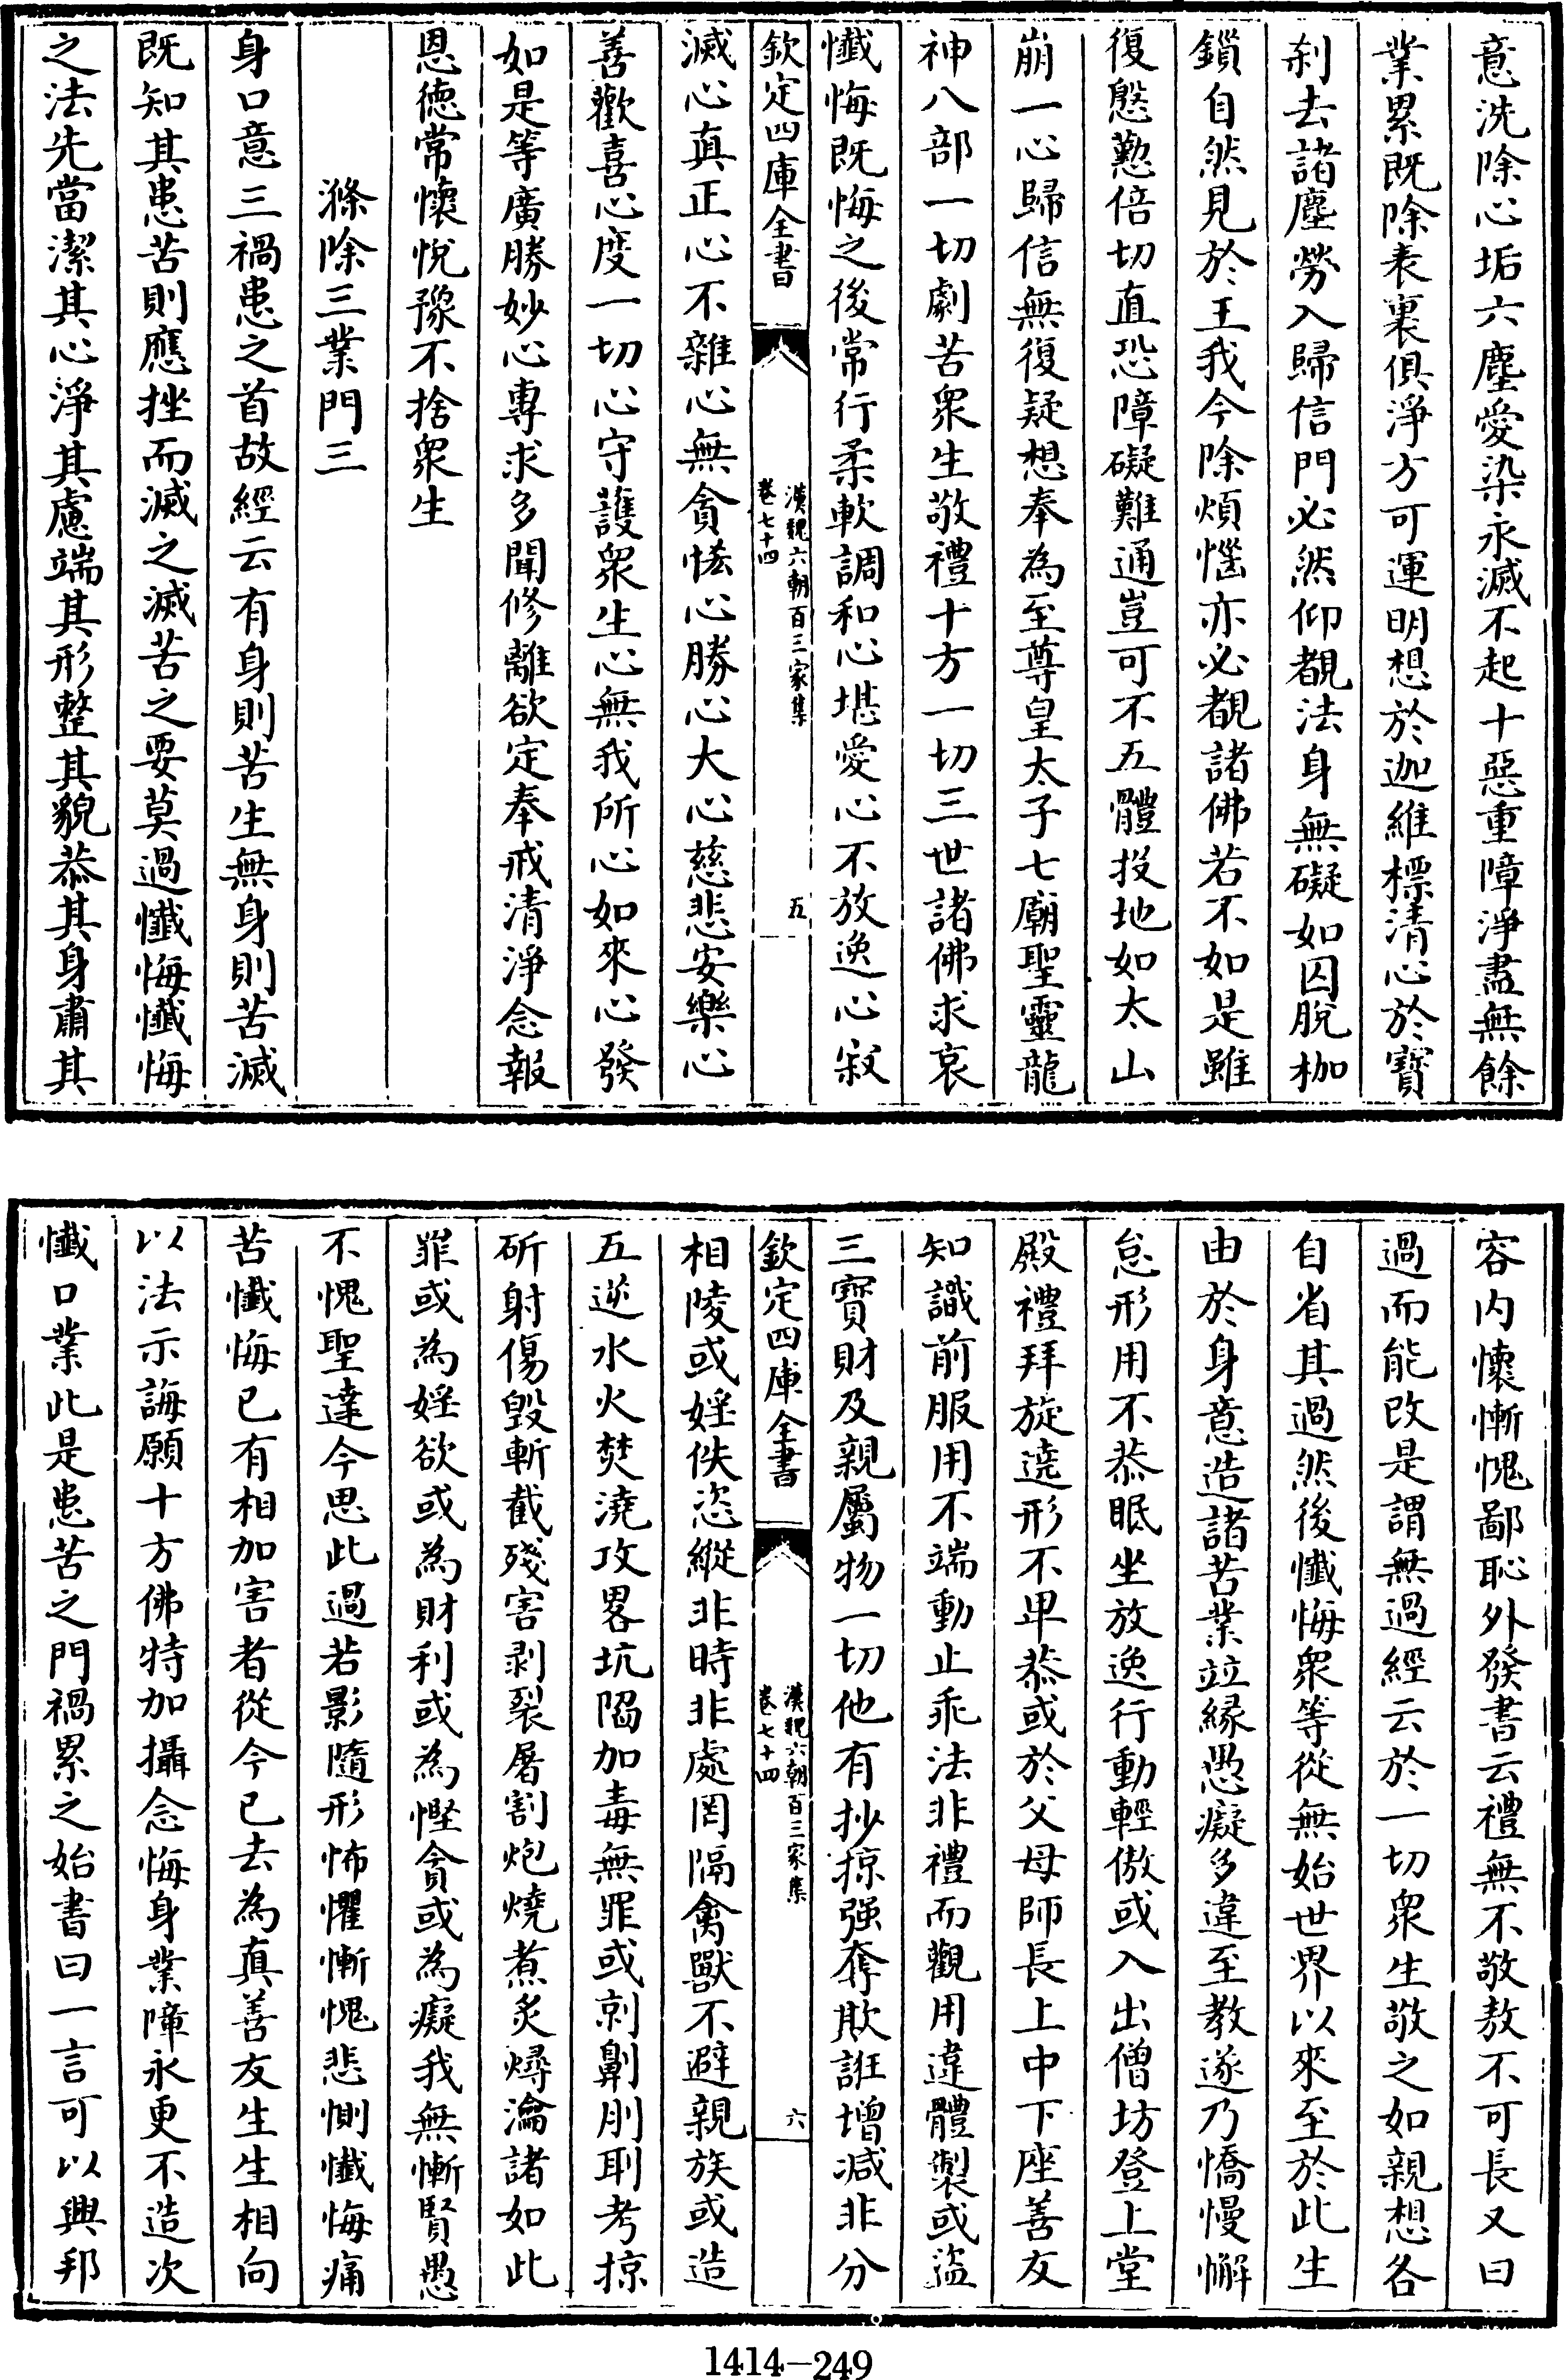 意洗除心垢六塵愛染永滅不起十惡重障淨盡無餘
業累既除表裏俱淨方可運明想於迦維標清心於寶
刹去諸塵勞入歸信門必然仰覩法身無礙如囚脫枷
鎖自然見於王我今除煩惱亦必覩諸佛若不如是雖
復慇懃倍切直恐障礙難通豈可不五體投地如太山
崩一心歸信無復疑想奉為至尊皇太子七廟聖靈龍
神八部一切劇苦衆生敬禮十方一切三世諸佛求哀
懺悔既悔之後常行柔軟調和心堪愛心不放逸心寂
欽定四庫全書
漢魏六朝百三家集
卷七十四
五
滅心真正心不雜心無貪恡心勝心大心慈悲安樂心
善歡喜心度一切心守護衆生心無我所心如來心發
如是等廣勝妙心專求多聞修離欲定奉戒清淨念報
恩德常懷悅豫不捨衆生
滌除三業門三
身口意三禍患之首故經云有身則苦生無身則苦滅
既知其患苦則應挫而滅之滅苦之要莫過懺悔懺悔
之法先當潔其心淨其慮端其形整其貌恭其身肅其
容内懷慚愧鄙恥外發書云禮無不敬敖不可長又曰
過而能改是謂無過經云於一切衆生敬之如親想各
自省其過然後懺悔衆等從無始世界以來至於此生
由於身意造諸苦業竝縁愚癡多違至教遂乃憍慢懈
怠形用不恭眠坐放逸行動輕傲或入出僧坊登上堂
殿禮拜旋遶形不卑恭或於父母師長上中下座善友
知識前服用不端動止乖法非禮而觀用違體製或盜
三寶財及親屬物一切他有抄掠强奪欺誑增减非分
欽定四庫全書
漢魏六朝百三家集
卷七十四
六
相陵或婬佚恣縱非時非處罔隔禽獸不避親族或造
五逆水火焚澆攻畧坑陷加毒無罪或剠劓刖刵考掠
斫射傷毀斬截殘害剥裂屠割炮燒煮炙燖瀹諸如此
罪或為婬欲或為財利或為慳貪或為癡我無慚賢愚
不愧聖達今思此過若影隨形怖懼慚愧悲惻懺悔痛
苦懺悔已有相加害者從今已去為真善友生生相向
以法示誨願十方佛特加攝念悔身業障永更不造次
懺口業此是患苦之門禍累之始書曰一言可以興邦
1414—249